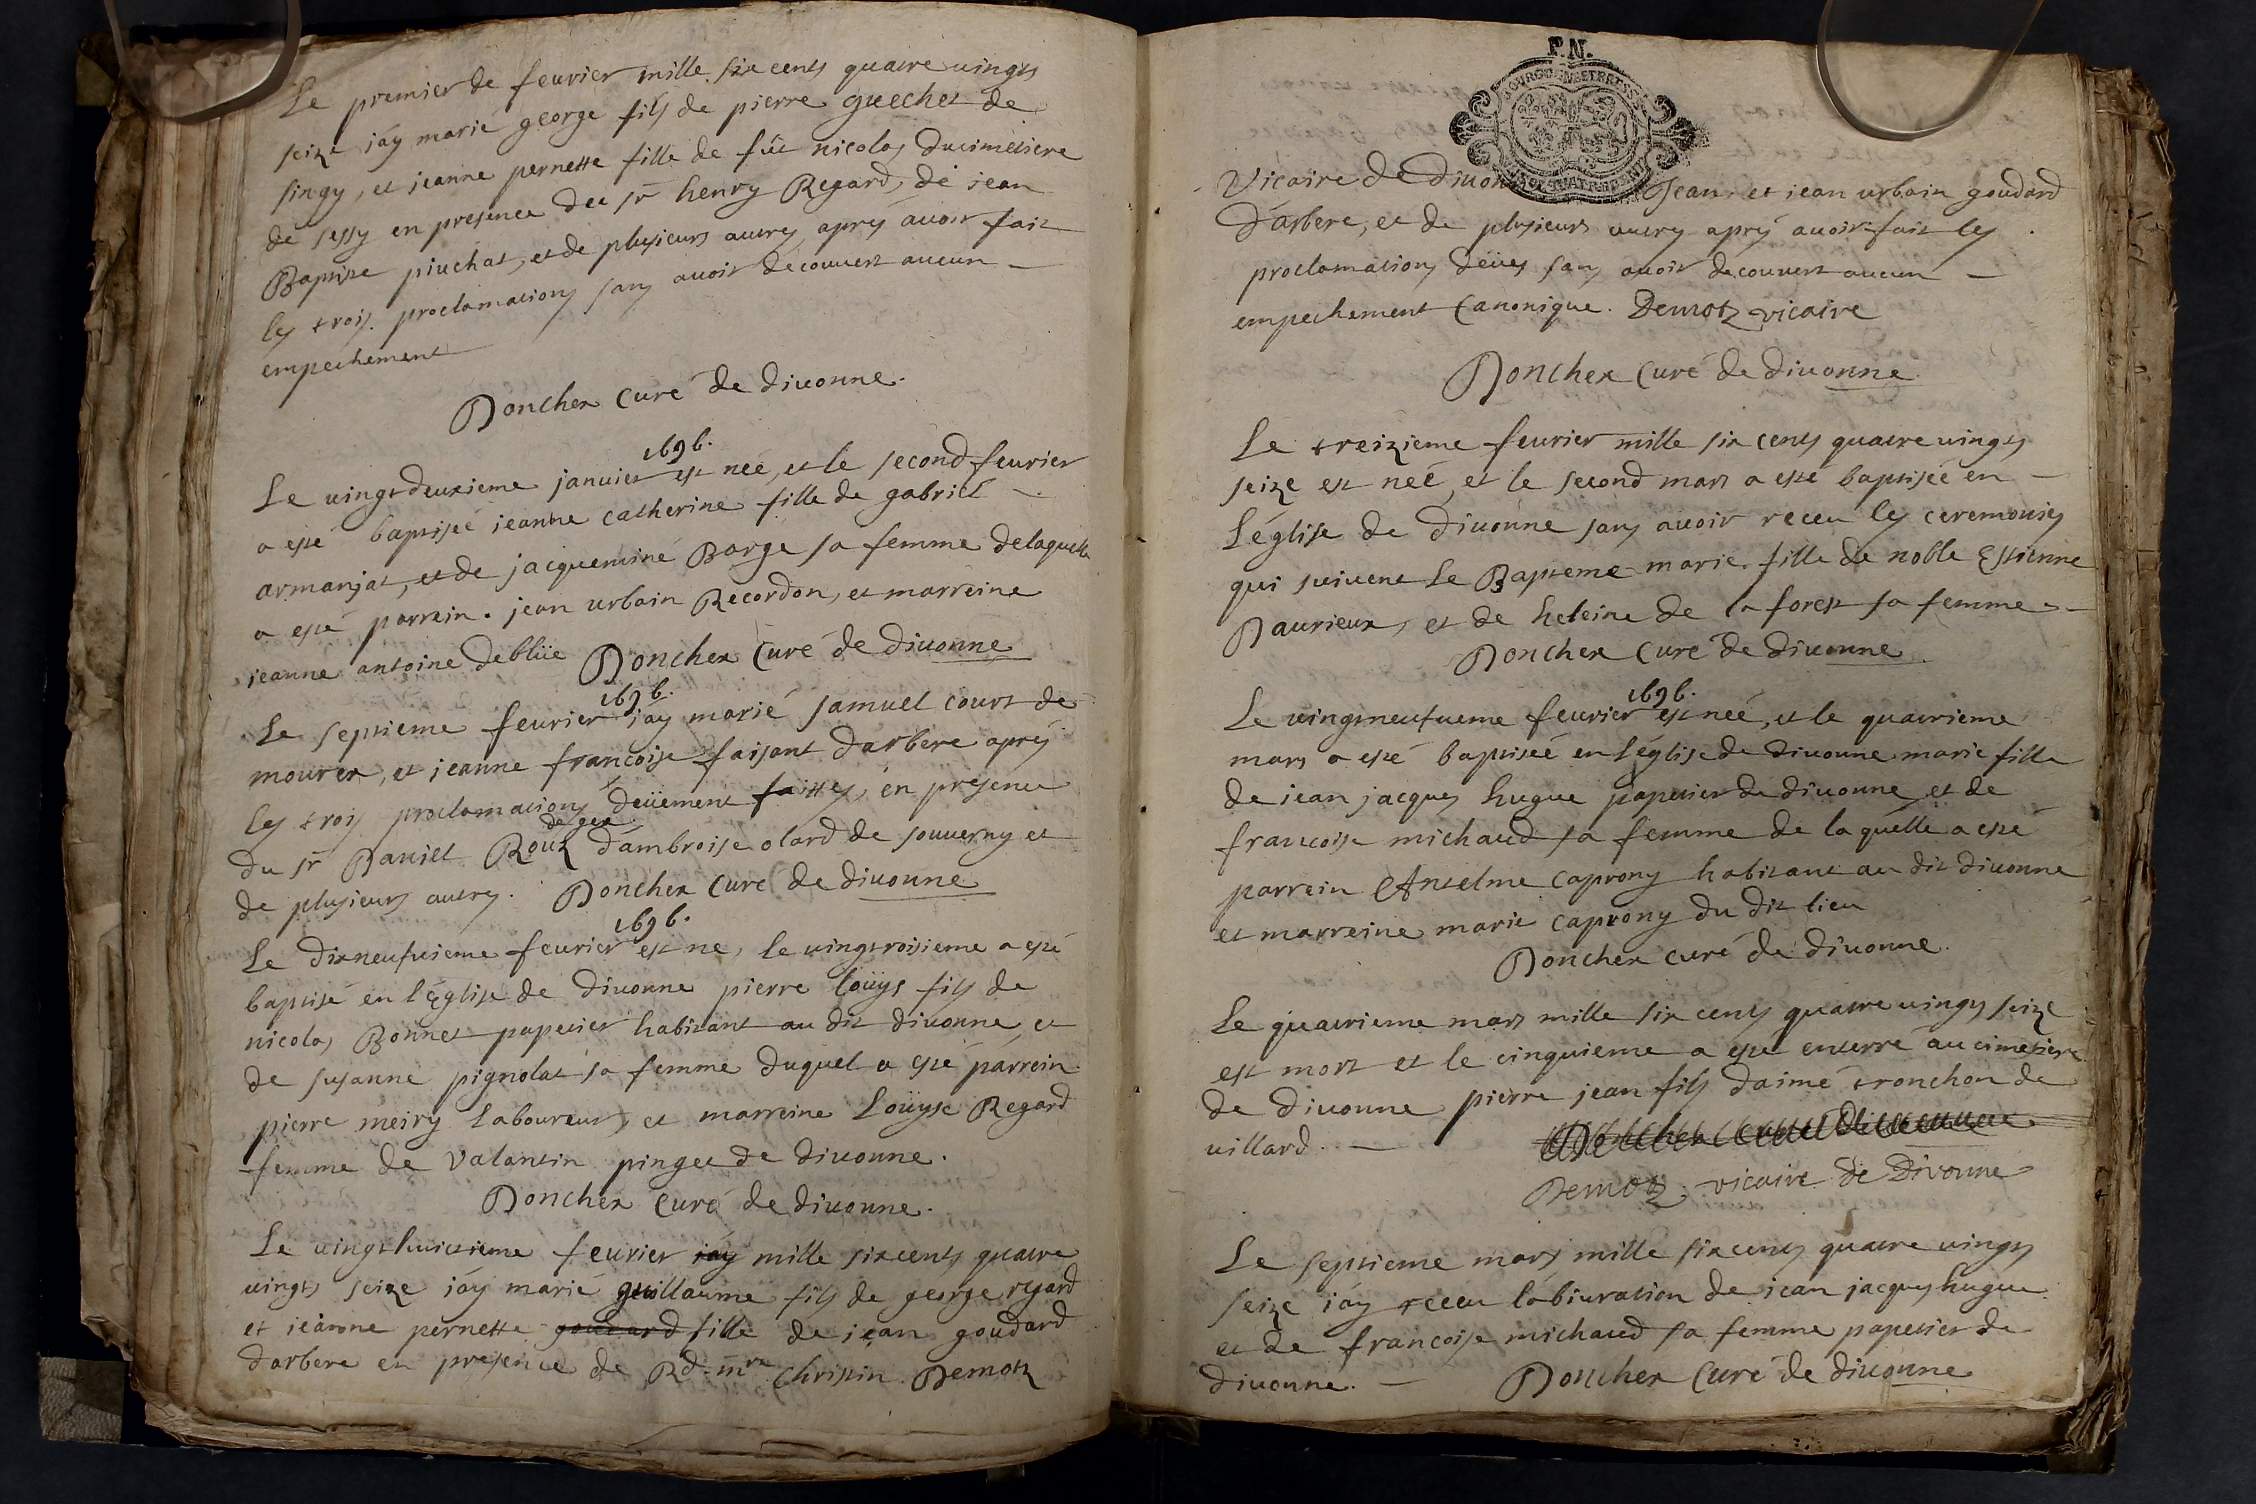 Le premier de feurier mille six cents quatre uingts
seize iáy marié george fils de pierre guechet de
singy, et jeanne pernette fille de fût nicolas ducimetiere
de sessy en presence du sr henry Regard, de jean
Baptiste piuchat, et de plusieurs autres aprés auoir fait
les trois proclamations sans auoir decouuert aucun
empechement
Poncher Curé de diuonne.
1696.
Le uingtdeuxieme januier est neé, et le second feurier
a esté baptiseé jeanne catherine fille de gabriel
armanjat, et de jacquemine Barge sa femme delaquelle
a esté parrein jean urbain Recordon, et marreine
jeanne antoine deblüe Poncher Curé de diuonne
1696.
Le septieme feurier iáy marié samuel court de
mourex, et jeanne francoise faisant darbere aprés
les trois proclamations deüement faittes, en presence
de gex
du sr Daniel Roux dambroise olard de souuerny et
de plusieurs autres. Poncher Curé de diuonne
1696.
Le dixneufuieme feurier est né, le uingtroisieme a esté
baptisé en l'église de diuonne pierre loüys fils de
nicolas Bonnet papetier habitant au dit diuonne, et
de susanne pignolat sa femme duquel a esté parrein
pierre meiry laboureur, et marreine Loüyse Regard
femme de Valantin pinget de diuonne.
Poncher Curé de diuonne.
Le uingthuictieme feurier iáy mille six cents quatre
uingts seize iáy marié guillaume fils de george regard
et jeanne pernette goudard fille de jean goudard
darbere en presence de Rd. mre Christin Demotz
P.N.
Vicaire de diuonne Jean et jean urbain goudard
d'arbere, et de plusieurs autres aprés auoir fait les
proclamations deües sans auoir decouuert aucun
empechement Canonique. Demotz vicaire
Poncher Curé de diuonne
Le treizieme feurier mille six cents quatre uingts
seize est neé, et le second mars a esté baptiseé en
l'église de diuonne sans auoir receu les ceremonies
qui suiuent le Bapteme marie fille de noble Estienne
Daurieux, et de heleine de la forest sa femme
Poncher Curé de diuonne
1696.
Le uingtneufueme feurier est neé, et le quatrieme
mars a esté baptiseé en l'église de diuonne marie fille
de jean jacques hugue papetier de diuonne et de
francoise michaud sa femme de laquelle a esté
parrein Antelme caprony habitant au dit diuonne
et marreine marie caprony du dit lieu
Poncher curé de diuonne.
Le quatrieme mars mille six cents quatre uingts seize
est mort et le cinquieme a esté enterré au cimetiere
de diuonne pierre jean fils daimé tronchon de
uillard.
Demotz vicaire de Divonne
Le septieme mars mille six cents quatre uingts
seize iáy receu l'abiuration de jean jacques hugue
et de francoise michaud sa femme papetier de
diuonne. Poncher Curé de diuonne